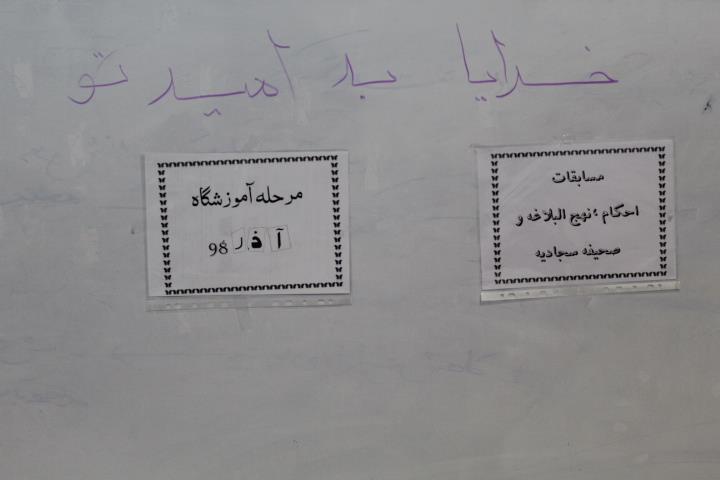 خدایا به امید تو
مسابقات
احکام ؛ نهج البلاغه و
صحیفه سجادیه
مرحله آموزشگاه
آذر 98